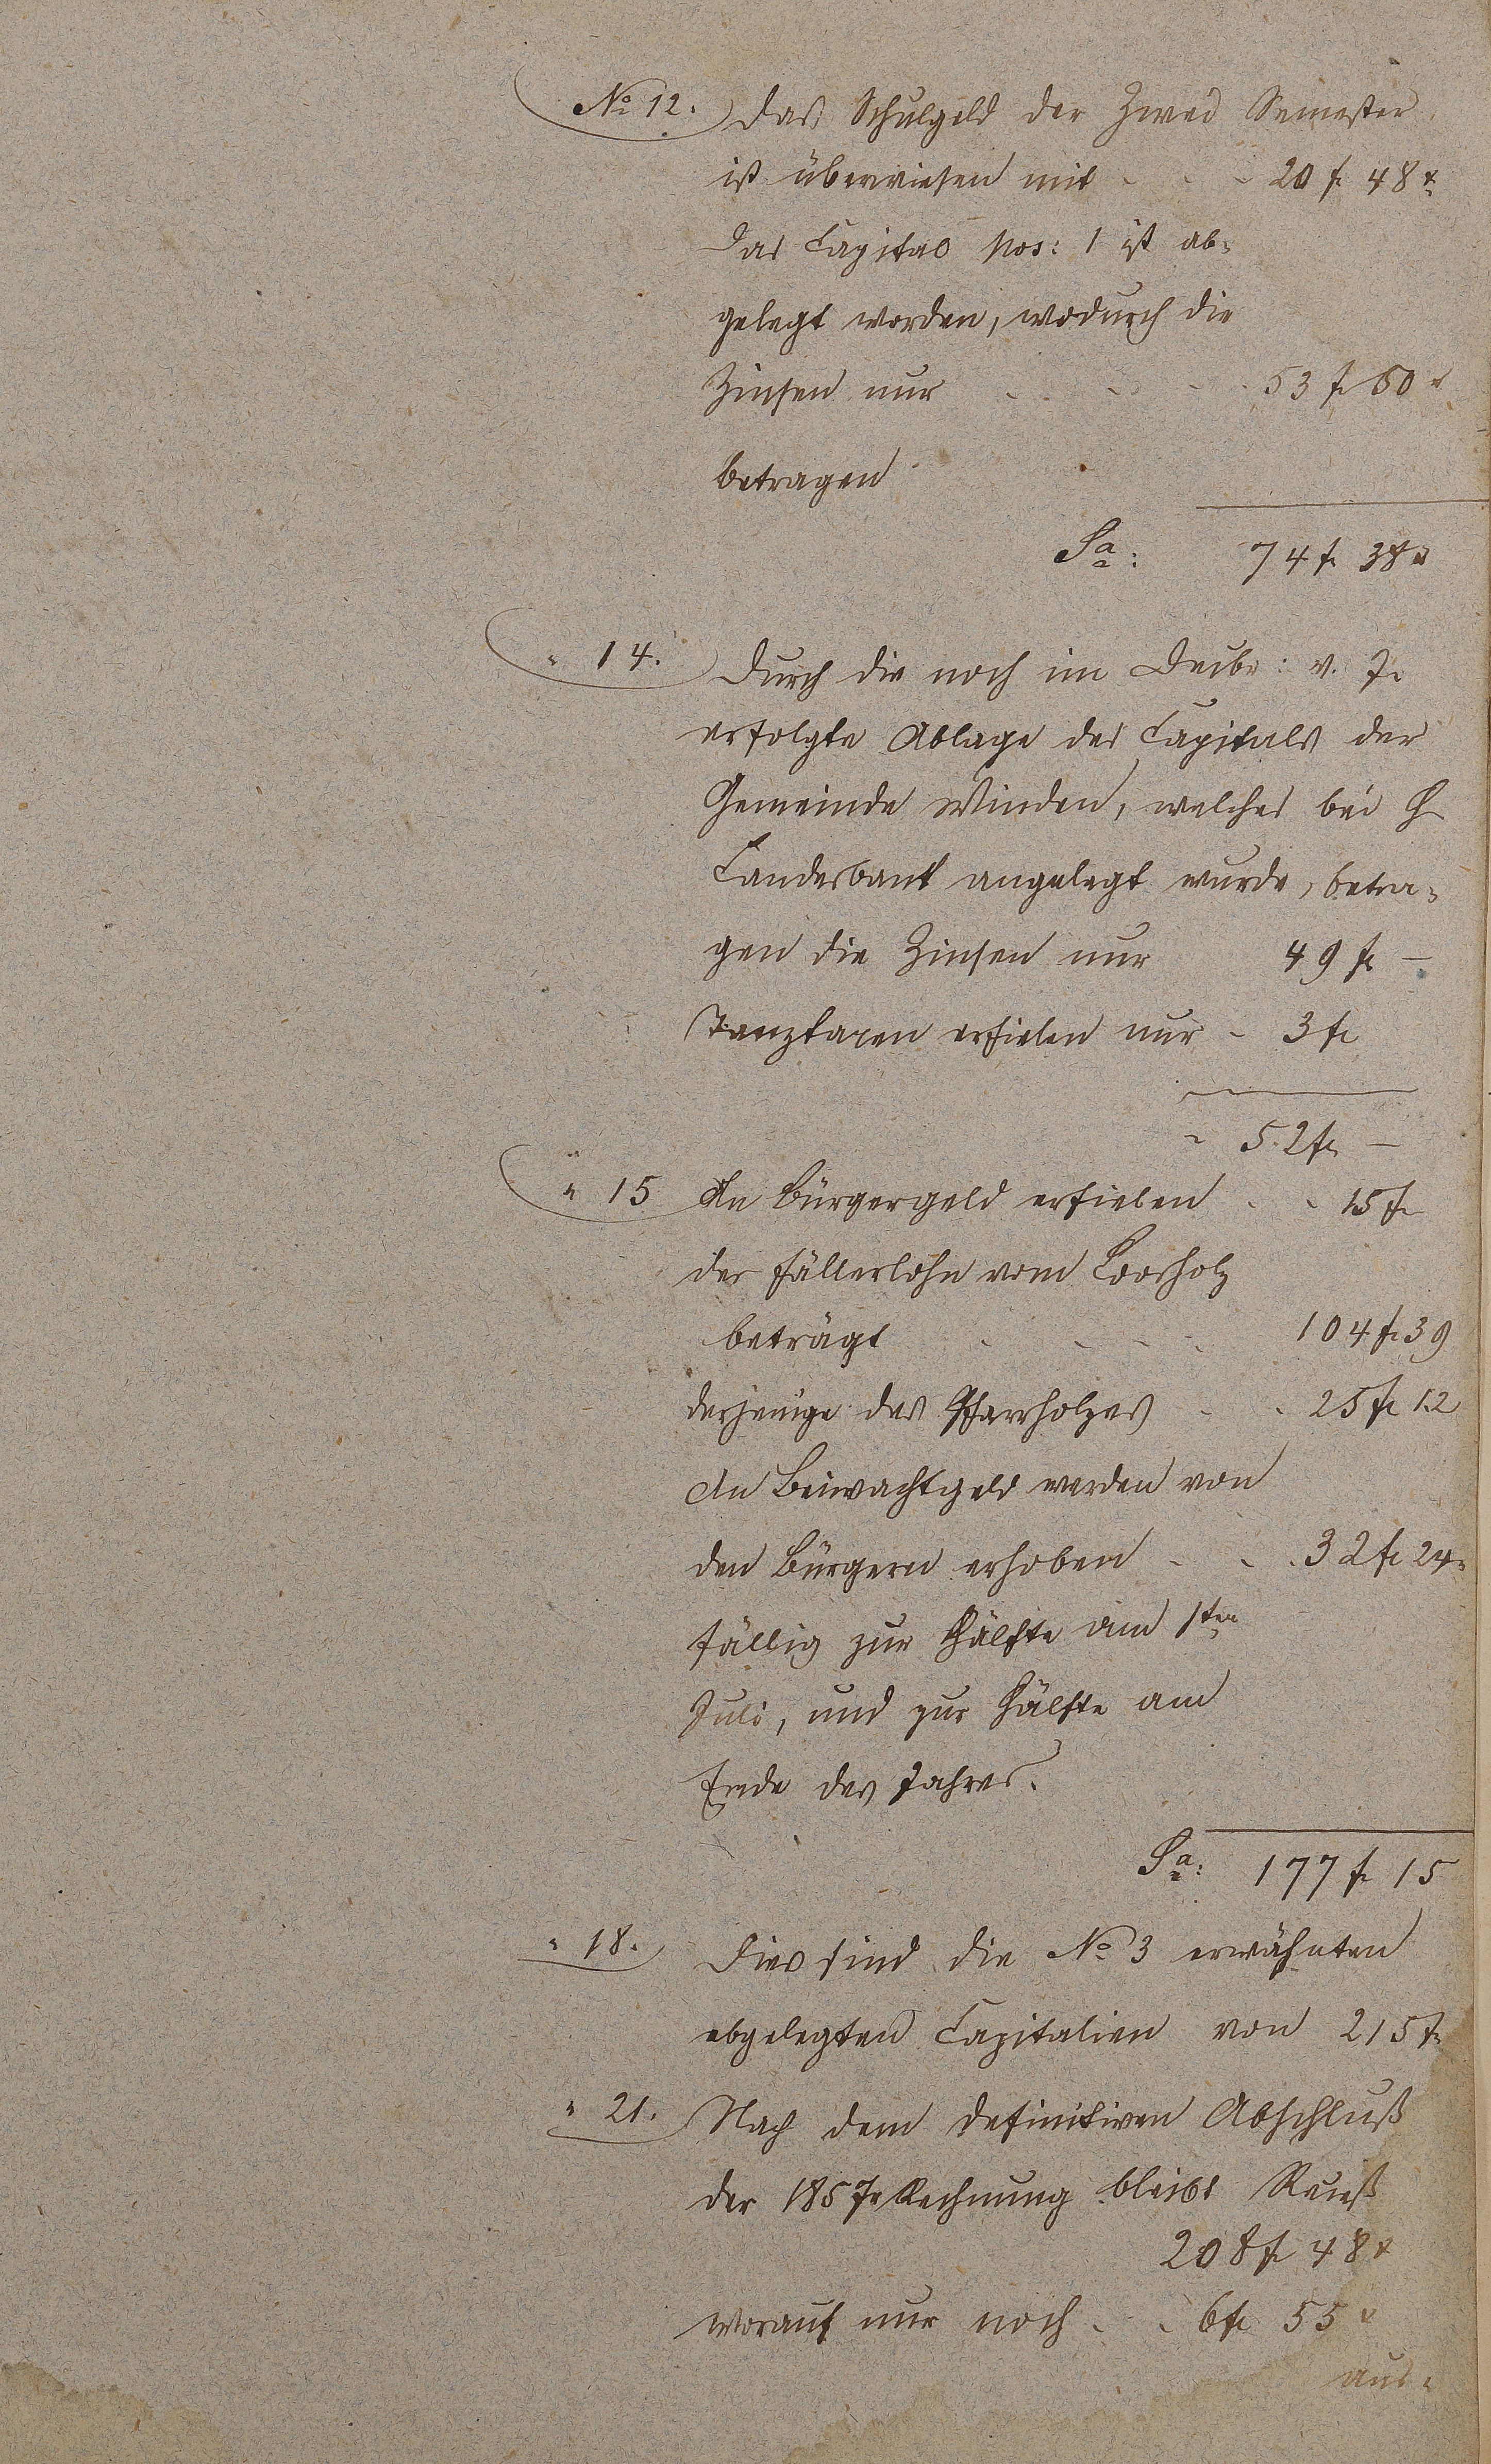 No 12. Das Schulgeld der Zwei Semester
ist überwiesen mit - - - 20 f 48 x
Das Capital pos: 1 ist ab-
gelegt worden, wodurch die
Zinsen nur - - - - 53 f 50 x
betragen
Sa: 74 f 38 x
" 14. Durch die noch im Decbr: v. J.
erfolgte Ablage des Capitals der
Gemeinde Winden, welches bei H
Landesbank angelegt wurde, betra-
gen die Zinsen nur 49 f —
Tanztaxen erfielen nur - 3 f
- 52 f —
" 15 An Bürgergeld erfielen - - 15 f
der Fällerlohn vom Loosholz
beträgt - - - - 104 f 39
derjenige des Pfarrholzes - - 25 f 12
An Beiwachtgeld werden von
den Bürgern erhoben - - - 32 f 24
fällig zur Hälfte am 1ten
Juli, und zur Hälfte am
Ende des Jahres.
Sa: 177 f 15
" 18. Dies sind die No 3 erwähnten
abgelegten Capitalien von 215 f
" 21. Nach dem definitiven Abschluß
der 1857r Rechnung bleibt Receß
208 f 48 x
worauf nur noch - - 6 f 55 x
aus-